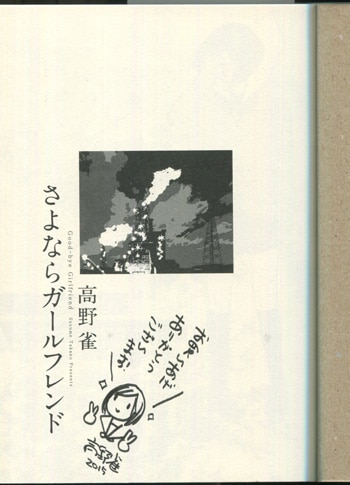 さよならガールフレンド
Good-bye Girlfriend
Suzume Takano Presents
高野雀
お買いあげ
ありがとう
ござい
ます
高野雀
2015